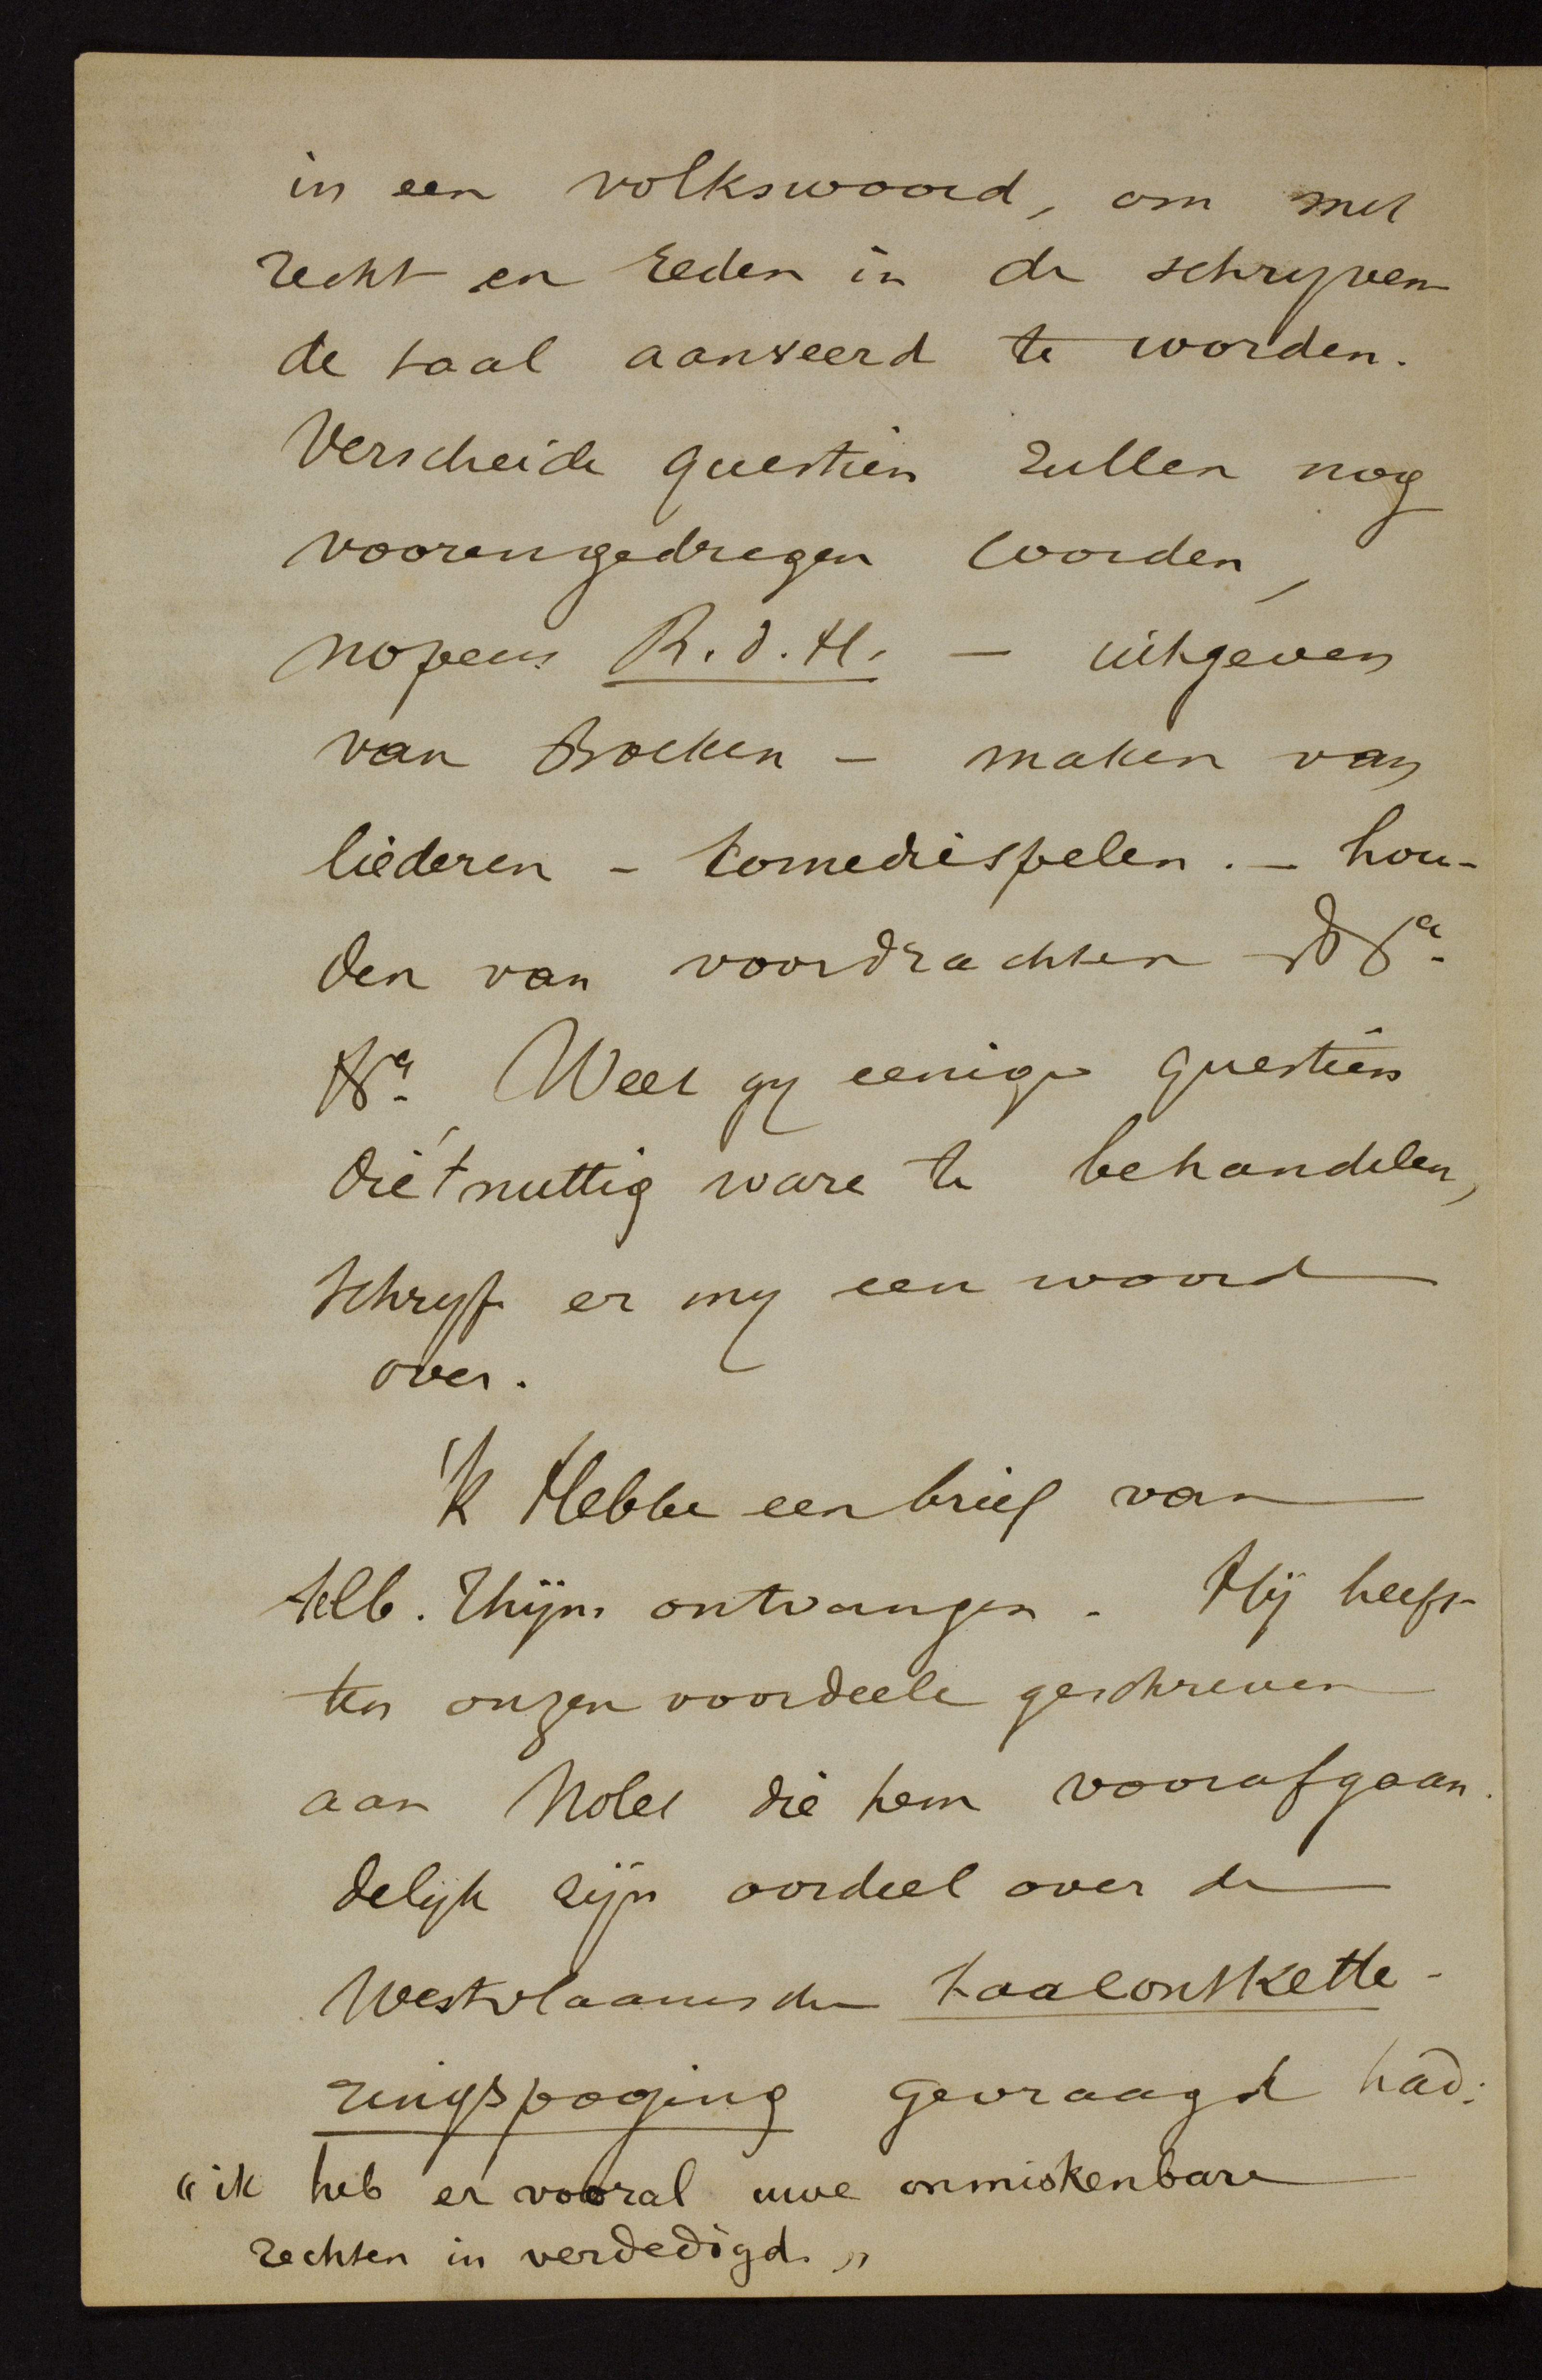 in een volkswoord, om met
recht en reden in de schryven-
de taal aanveerd te worden.
Verscheide questien zullen nog
voorengedregen worden,
nopens R.d.H. — uitgeven
van Boeken – maken van
liederen – comediespelen. – hou-
den van voordrachten &ª.
&ª. Weet gy eenige questien
die 't nuttig ware te behandelen,
schryf er my een woord
over.
'k Hebbe een brief van
Alb. Thijm ontvangen. Hij heeft
ten onzen voordeele geschreven
aan Nolet die hem voorafgaan-
delijk zijn oordeel over de
Westvlaamsche taalontkette-
ringspoging gevraagd had:
"ik heb er vooral uwe onmiskenbare
rechten in verdedigd."